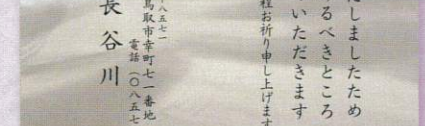 だしましたため
るべきところ
いただきます
程お祈り申し上げます
八五七一
鳥取市幸町七一番地
電話（〇八五七
長谷川